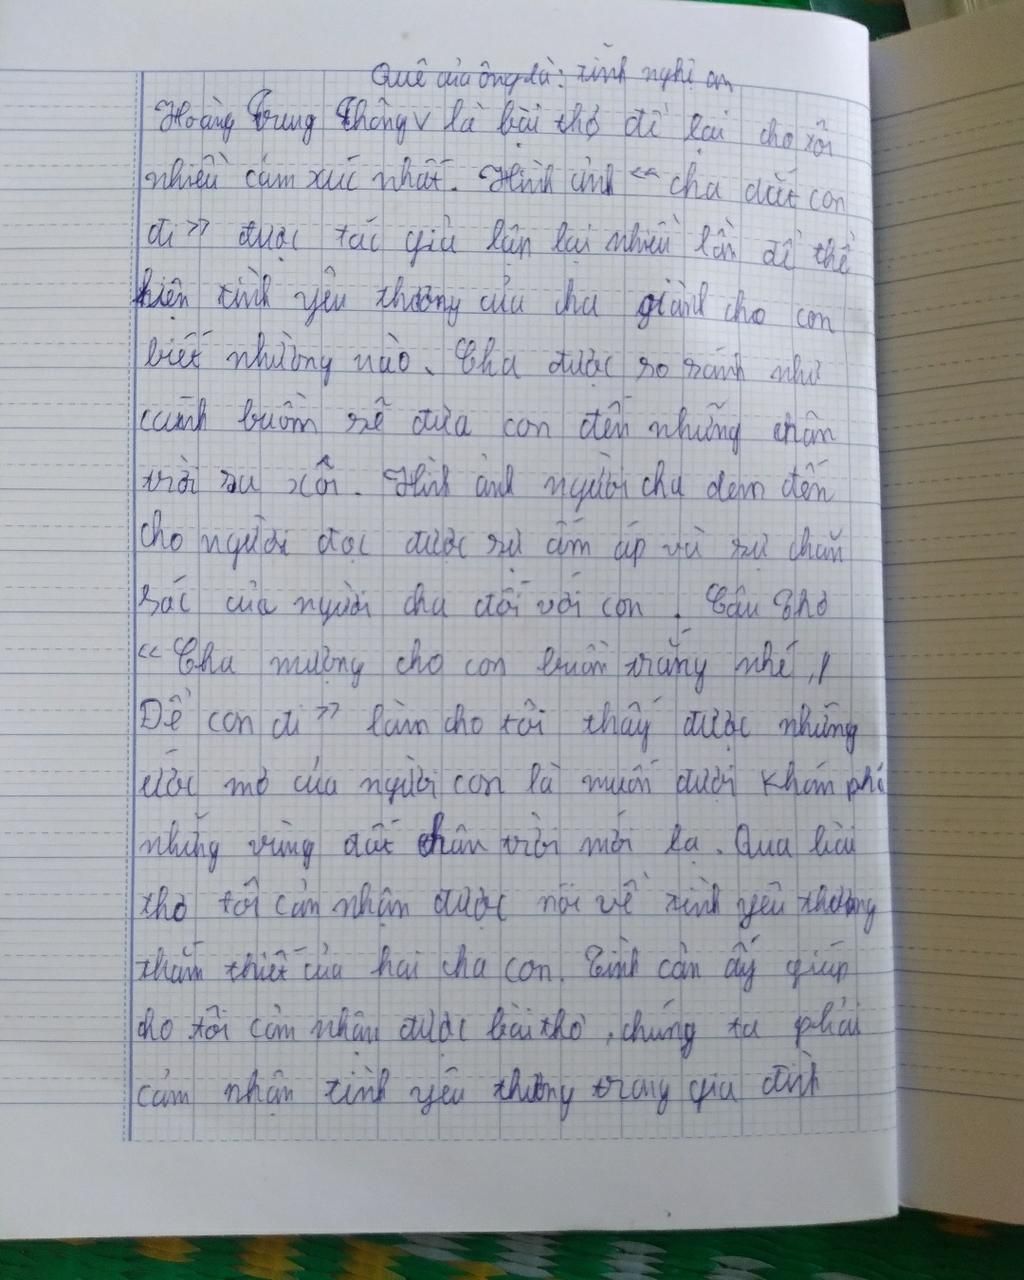 Quê của ông là: tỉnh nghệ an
Hoàng Trung Thông v là bài thơ để lại cho tôi
nhiều cảm xúc nhất. Hình ảnh "cha dắt con
đi" được tác giả lặp lại nhiều lần để thể
hiện tình yêu thương của cha giành cho con
biết nhường nào. Cha được so sánh như
cánh buồm sẽ đưa con đến những chân
trời xa xôi. Hình ảnh người cha đem đến
cho người đọc được sự ấm áp và sự chăm
sóc của người cha đối với con. Câu thơ
"Cha mượng cho con buồm trắng nhé, /
Để con đi" làm cho tôi thấy được những
ước mơ của người con là muốn được khám phá
những vùng đất chân trời mới lạ. Qua bài
thơ tôi cảm nhận được nói về tình yêu thương
thắm thiết của hai cha con. Tình cản ấy giúp
cho tôi cảm nhận được bài thơ, chúng ta phải
cảm nhận tình yêu thương trong gia đình